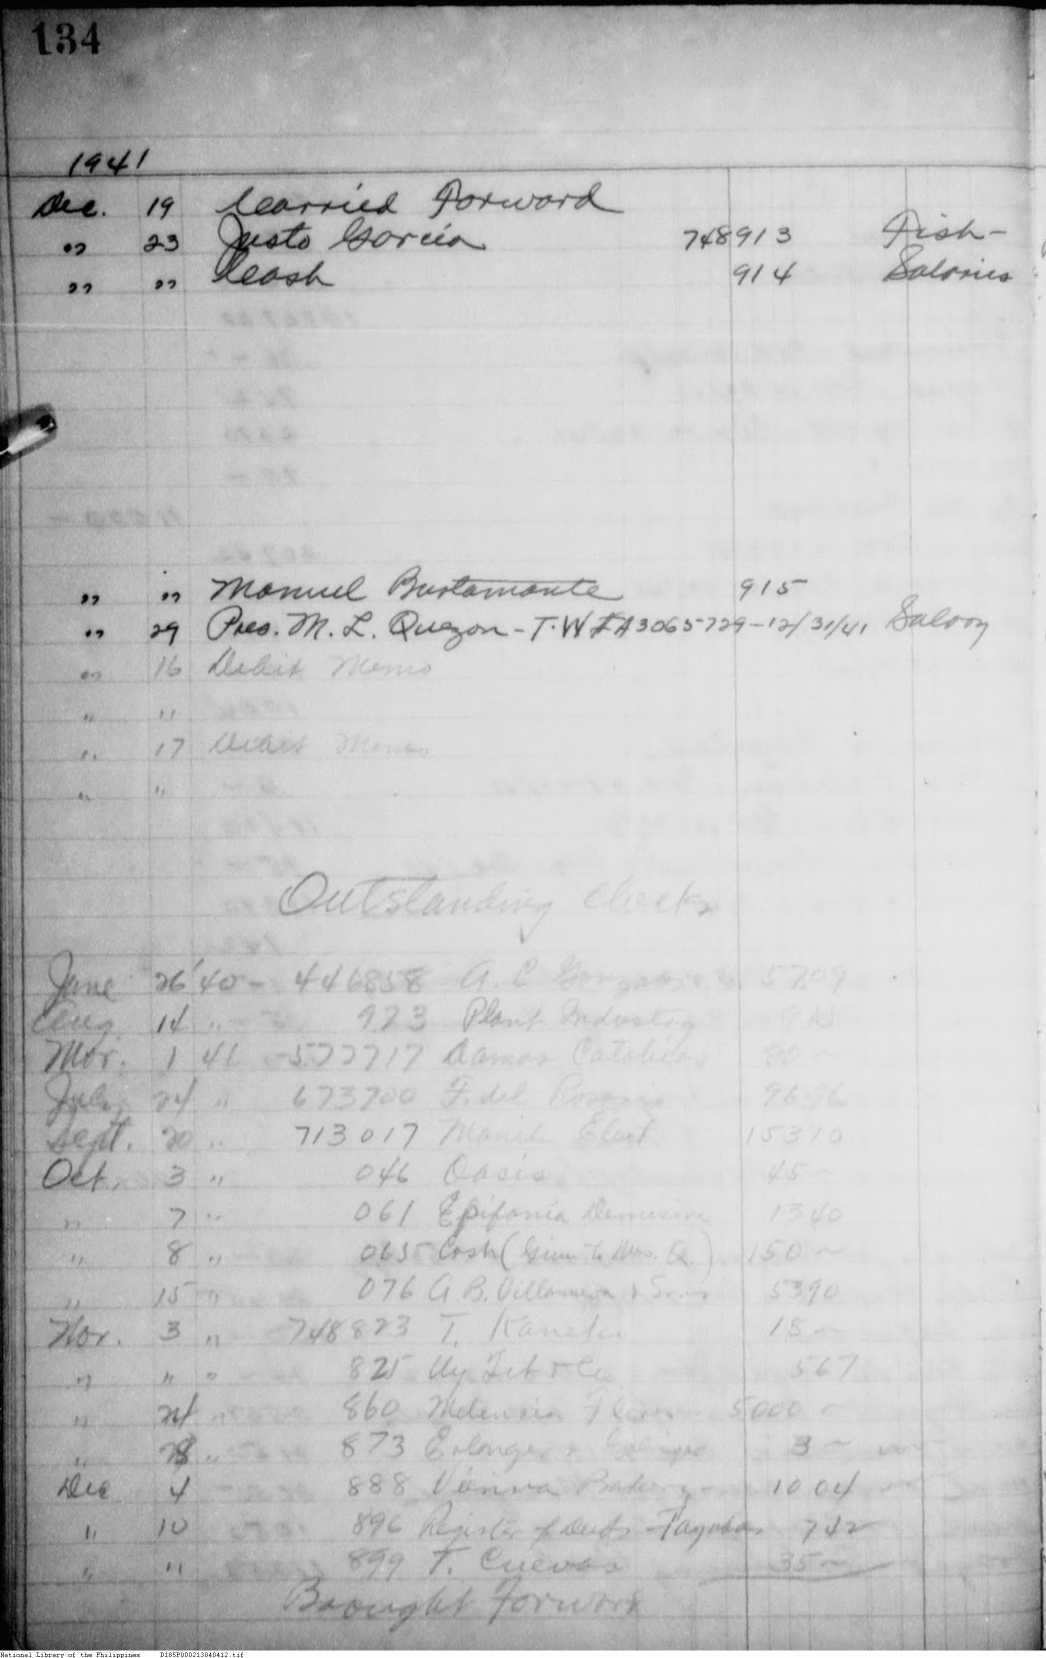 134
1941
Dec. 19 Carried Forward
" 23 Justo Garcia 748913 Fish-
" " Cash 914 Salaries
" " Manuel Bustamante 915
" 29 Pres. M. L. Quezon - T.W. 3065729-12/31/41 Salary
" 16 Debit Memo
" "
" 17 Debit Memo
" "
Outstanding Checks
June 26 '40 - 446858 A. C. 5709
Aug. 14 " 973 Plant Industry
Mar. 1 41 - 577717 Damas Catolicas 80 -
July 24 " 673700 F. del 9696
Sept. 20 " 713017 Manila Elect. 15310
Oct. 3 " 046 Oasis 45 -
" 7 " 061 Epifania 1340
" 8 " 0635 Cash (Given to Mrs. Q.) 150 -
" 15 " 076 A. B. Villanueva & Sons 5390
Nov. 3 " 748823 T. Kaneko 18 -
" " " 825 Uy Tit & Co 567
" 24 " 860 5000 -
" 28 " 873 Erlanger & 3 -
Dec 4 888 Vienna Bakery 1004
" 10 896 Register of Deeds - Tayabas 742
" " 899 T. Cuevas 35 -
Brought Forward
National Library of the Philippines D185P000213040412.tif